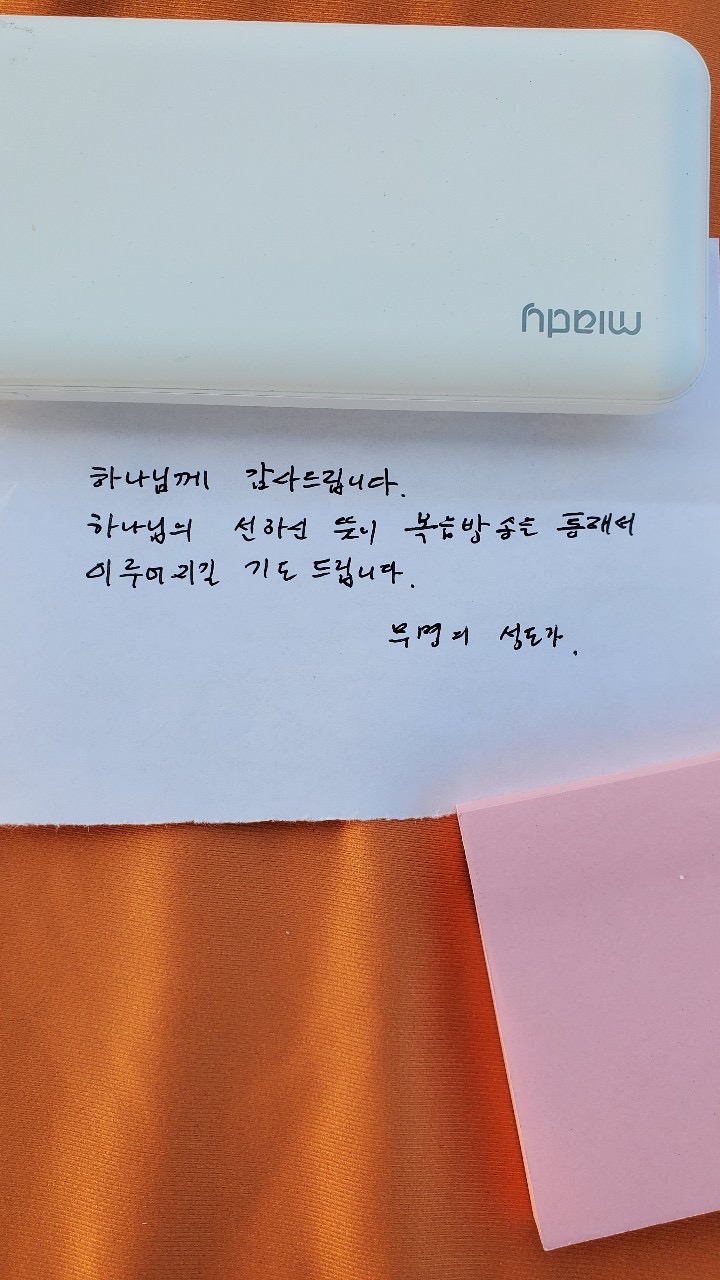 miady
하나님께 감사드립니다.
하나님의 선하신 뜻이 복음방송을 통해서
이루어지길 기도 드립니다.
무명의 성도가.